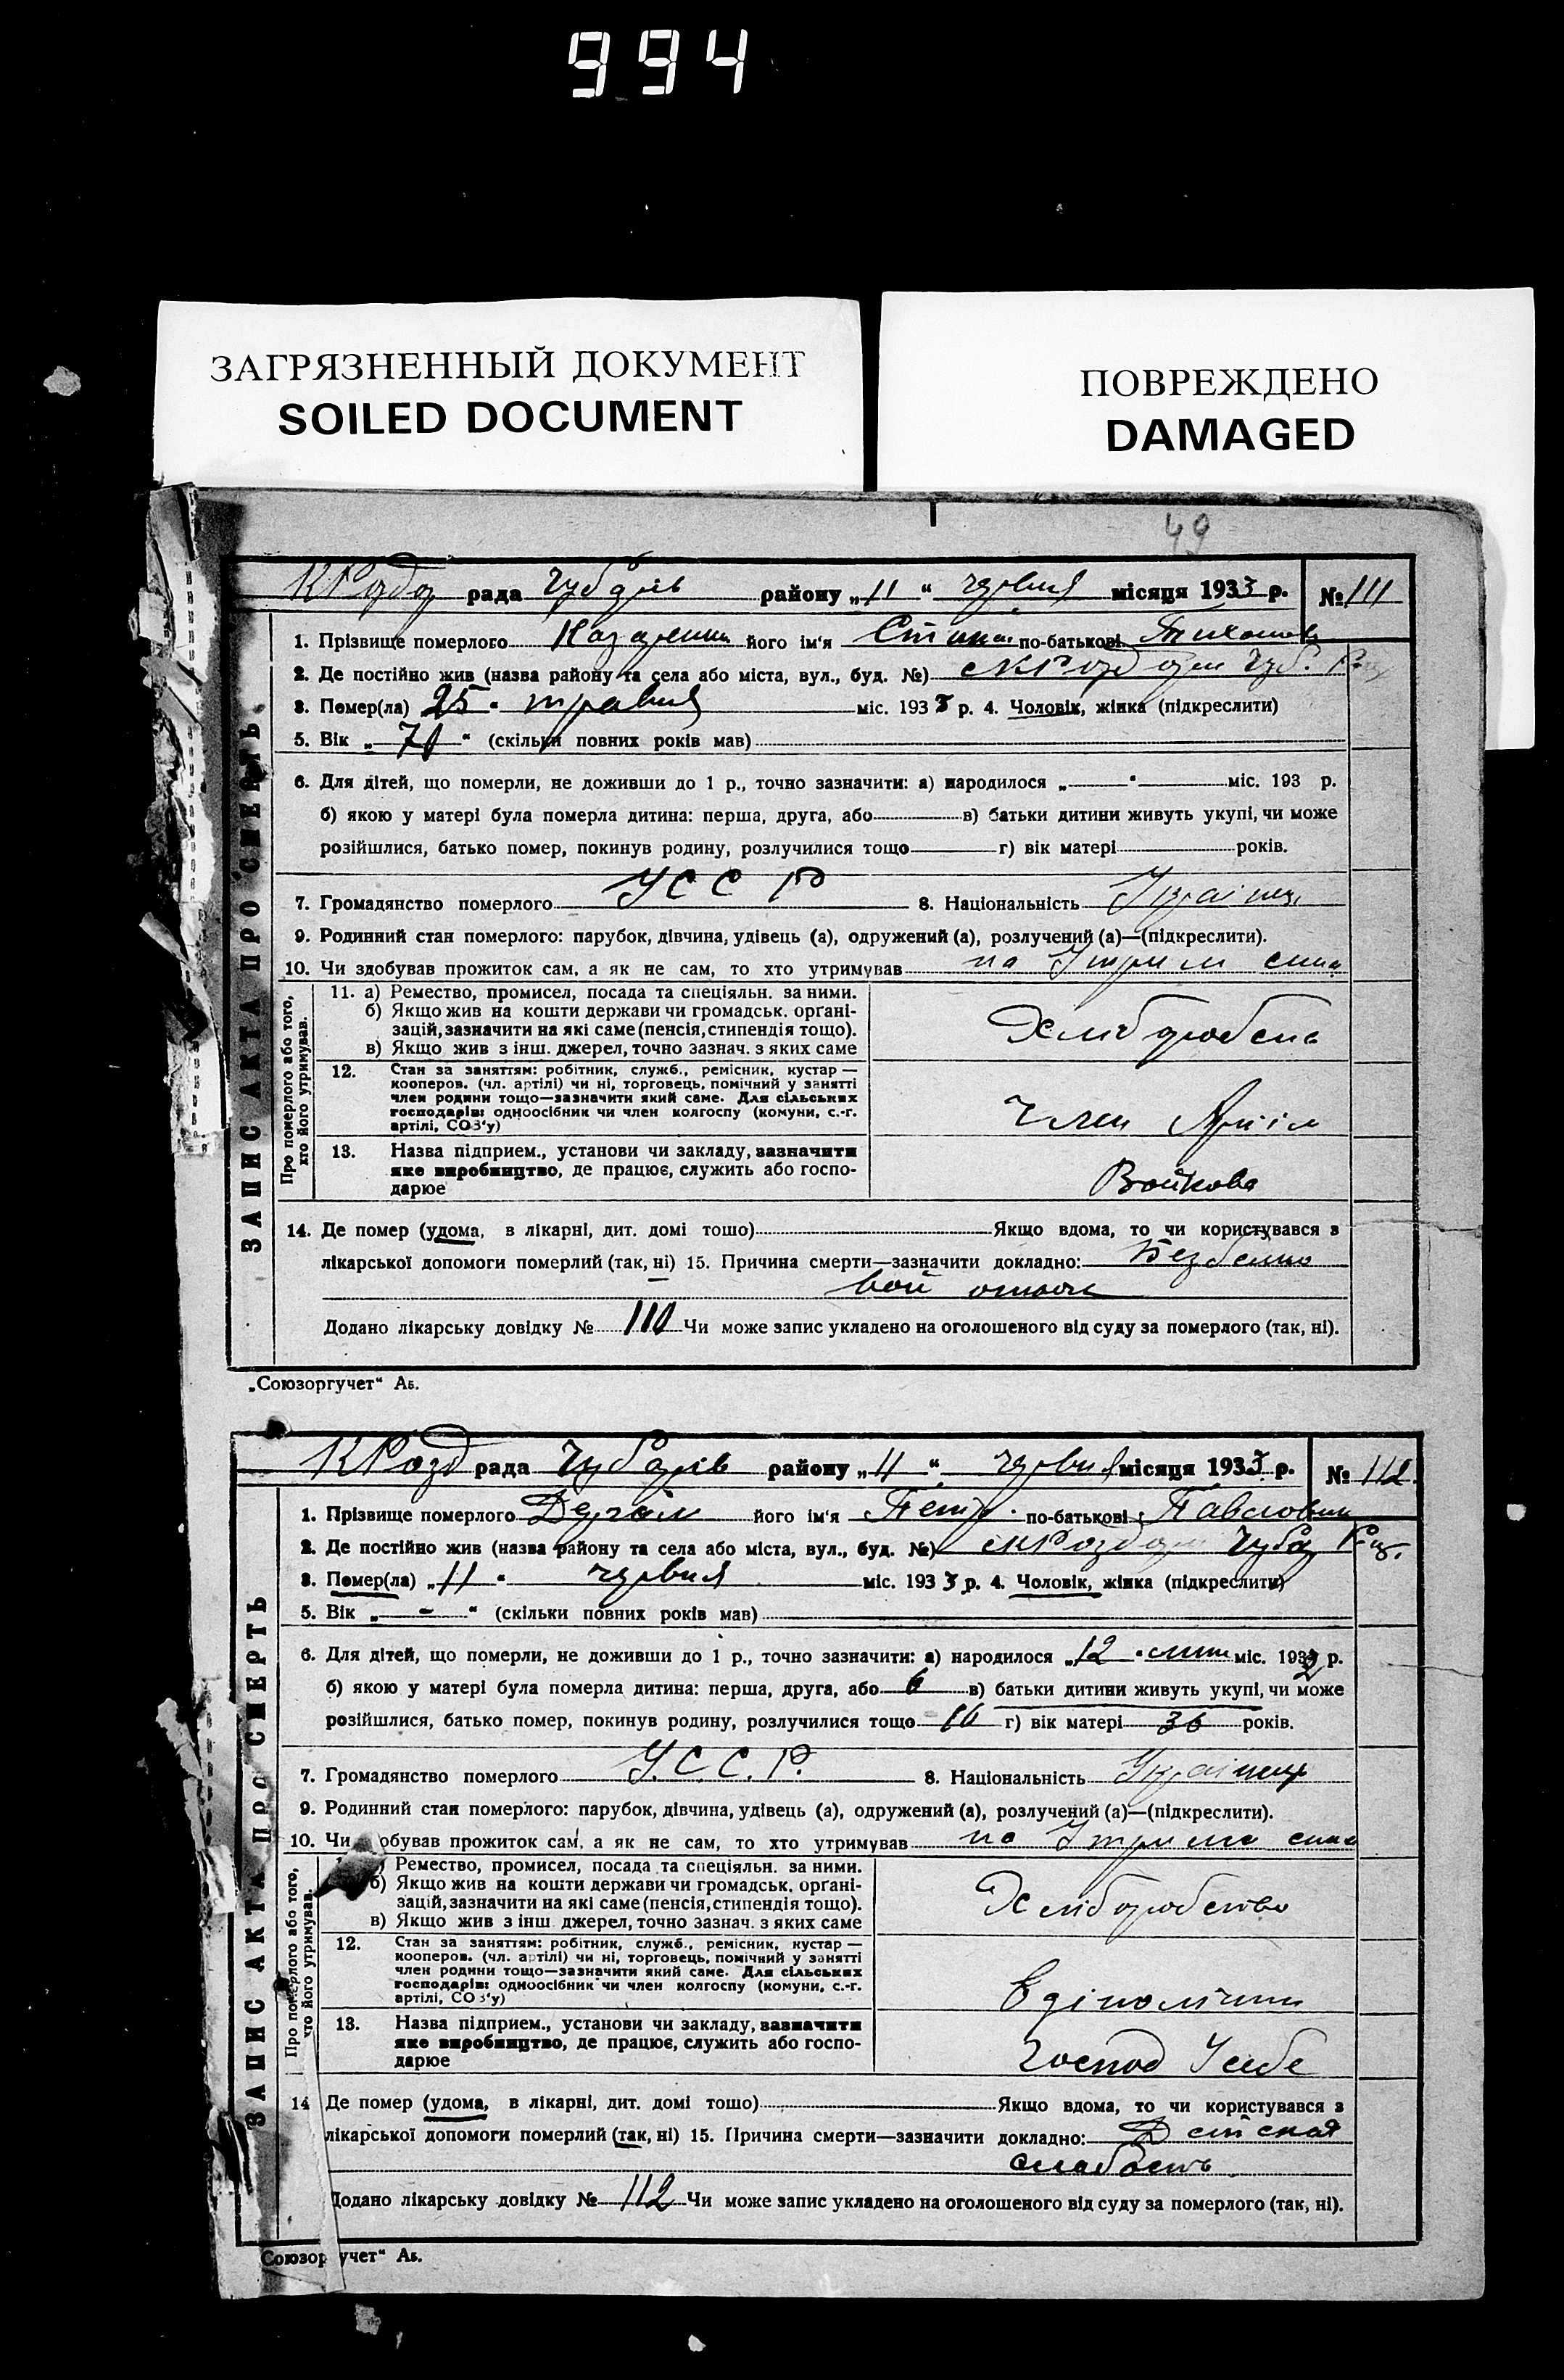 994
ЗАГРЯЗНЕННЫЙ ДОКУМЕНТ
SOILED DOCUMENT
ПОВРЕЖДЕНО
DAMAGED
49
ЗАПИС АКТА ПРО СМЕРТЬ
рада район у „11“ червня місяця 1933 р. № 111
1. Прізвище померлого його ім'я по-батькові
2. Де постійно жив (назва району та села або міста, вул., буд. №)
3. Помер(ла) 25 травня міс. 1933 р. 4. Чоловік, жінка (підкреслити)
5. Вік „70“ (скільки повних років мав)
6. Для дітей, що померли, не доживши до 1 р., точно зазначити: а) народилося „ “ міс. 193 р.
б) якою у матері була померла дитина: перша, друга, або в) батьки дитини живуть укупі, чи може
розійшлися, батько помер, покинув родину, розлучилися тощо г) вік матері років.
7. Громадянство померлого УССР 8. Національність
9. Родинний стан померлого: парубок, дівчина, удівець (а), одружений (а), розлучений (а)—(підкреслити).
10. Чи здобував прожиток сам, а як не сам, то хто утримував на
Про померлого або того, хто його утримував.
11. а) Ремество, промисел, посада та спеціяльн. за ними.
б) Якщо жив на кошти держави чи громадськ. органі-
зацій, зазначити на які саме (пенсія, стипендія тощо).
в) Якщо жив з інш. джерел, точно зазнач. з яких саме
12. Стан за заняттям: робітник, служб., ремісник, кустар —
кооперов. (чл. артілі) чи ні, торговець, помічний у занятті
член родини тощо—зазначити який саме. Для сільських
господарів: одноосібник чи член колгоспу (комуни, с.-г.
артілі, СОЗ'у)
Член
13. Назва підприєм., установи чи закладу, зазначити
яке виробництво, де працює, служить або госпо-
дарює
Войкова
14. Де помер (удома, в лікарні, дит. домі тощо) Якщо вдома, то чи користувався з
лікарської допомоги померлий (так, ні) 15. Причина смерти—зазначити докладно:
Додано лікарську довідку № 110 Чи може запис укладено на оголошеного від суду за померлого (так, ні).
„Союзоргучет“ Аб.
ЗАПИС АКТА ПРО СМЕРТЬ
рада району „11“ червня місяця 1933 р. № 112
1. Прізвище померлого його ім'я Петр по-батькові Павлович
2. Де постійно жив (назва району та села або міста, вул., буд. №)
3. Помер(ла) „11“ червня міс. 1933 р. 4. Чоловік, жінка (підкреслити)
5. Вік „-“ (скільки повних років мав)
6. Для дітей, що померли, не доживши до 1 р., точно зазначити: а) народилося „12“ міс. 1932 р.
б) якою у матері була померла дитина: перша, друга, або 6 в) батьки дитини живуть укупі, чи може
розійшлися, батько помер, покинув родину, розлучилися тощо г) вік матері 36 років.
7. Громадянство померлого У.С.С.Р. 8. Національність Українец
9. Родинний стан померлого: парубок, дівчина, удівець (а), одружений (а), розлучений (а)—(підкреслити).
10. Чи обував прожиток сам, а як не сам, то хто утримував на
Про померлого або того, хто його утримував.
Ремество, промисел, посада та спеціяльн. за ними.
б) Якщо жив на кошти держави чи громадськ. органі-
зацій, зазначити на які саме (пенсія, стипендія тощо).
в) Якщо жив з інш. джерел, точно зазнач. з яких саме
Хліборобство
12. Стан за заняттям: робітник, служб., ремісник, кустар —
кооперов. (чл. артілі) чи ні, торговець, помічний у занятті
член родини тощо—зазначити який саме. Для сільських
господарів: одноосібник чи член колгоспу (комуни, с.-г.
артілі, СОЗ'у)
13. Назва підприєм., установи чи закладу, зазначити
яке виробництво, де працює, служить або госпо-
дарює
Господ У себе
14 Де помер (удома, в лікарні, дит. домі тощо) Якщо вдома, то чи користувався з
лікарської допомоги померлий (так, ні) 15. Причина смерти—зазначити докладно:
слабость
Додано лікарську довідку № 112 Чи може запис укладено на оголошеного від суду за померлого (так, ні).
Союзоргучет“ Аб.